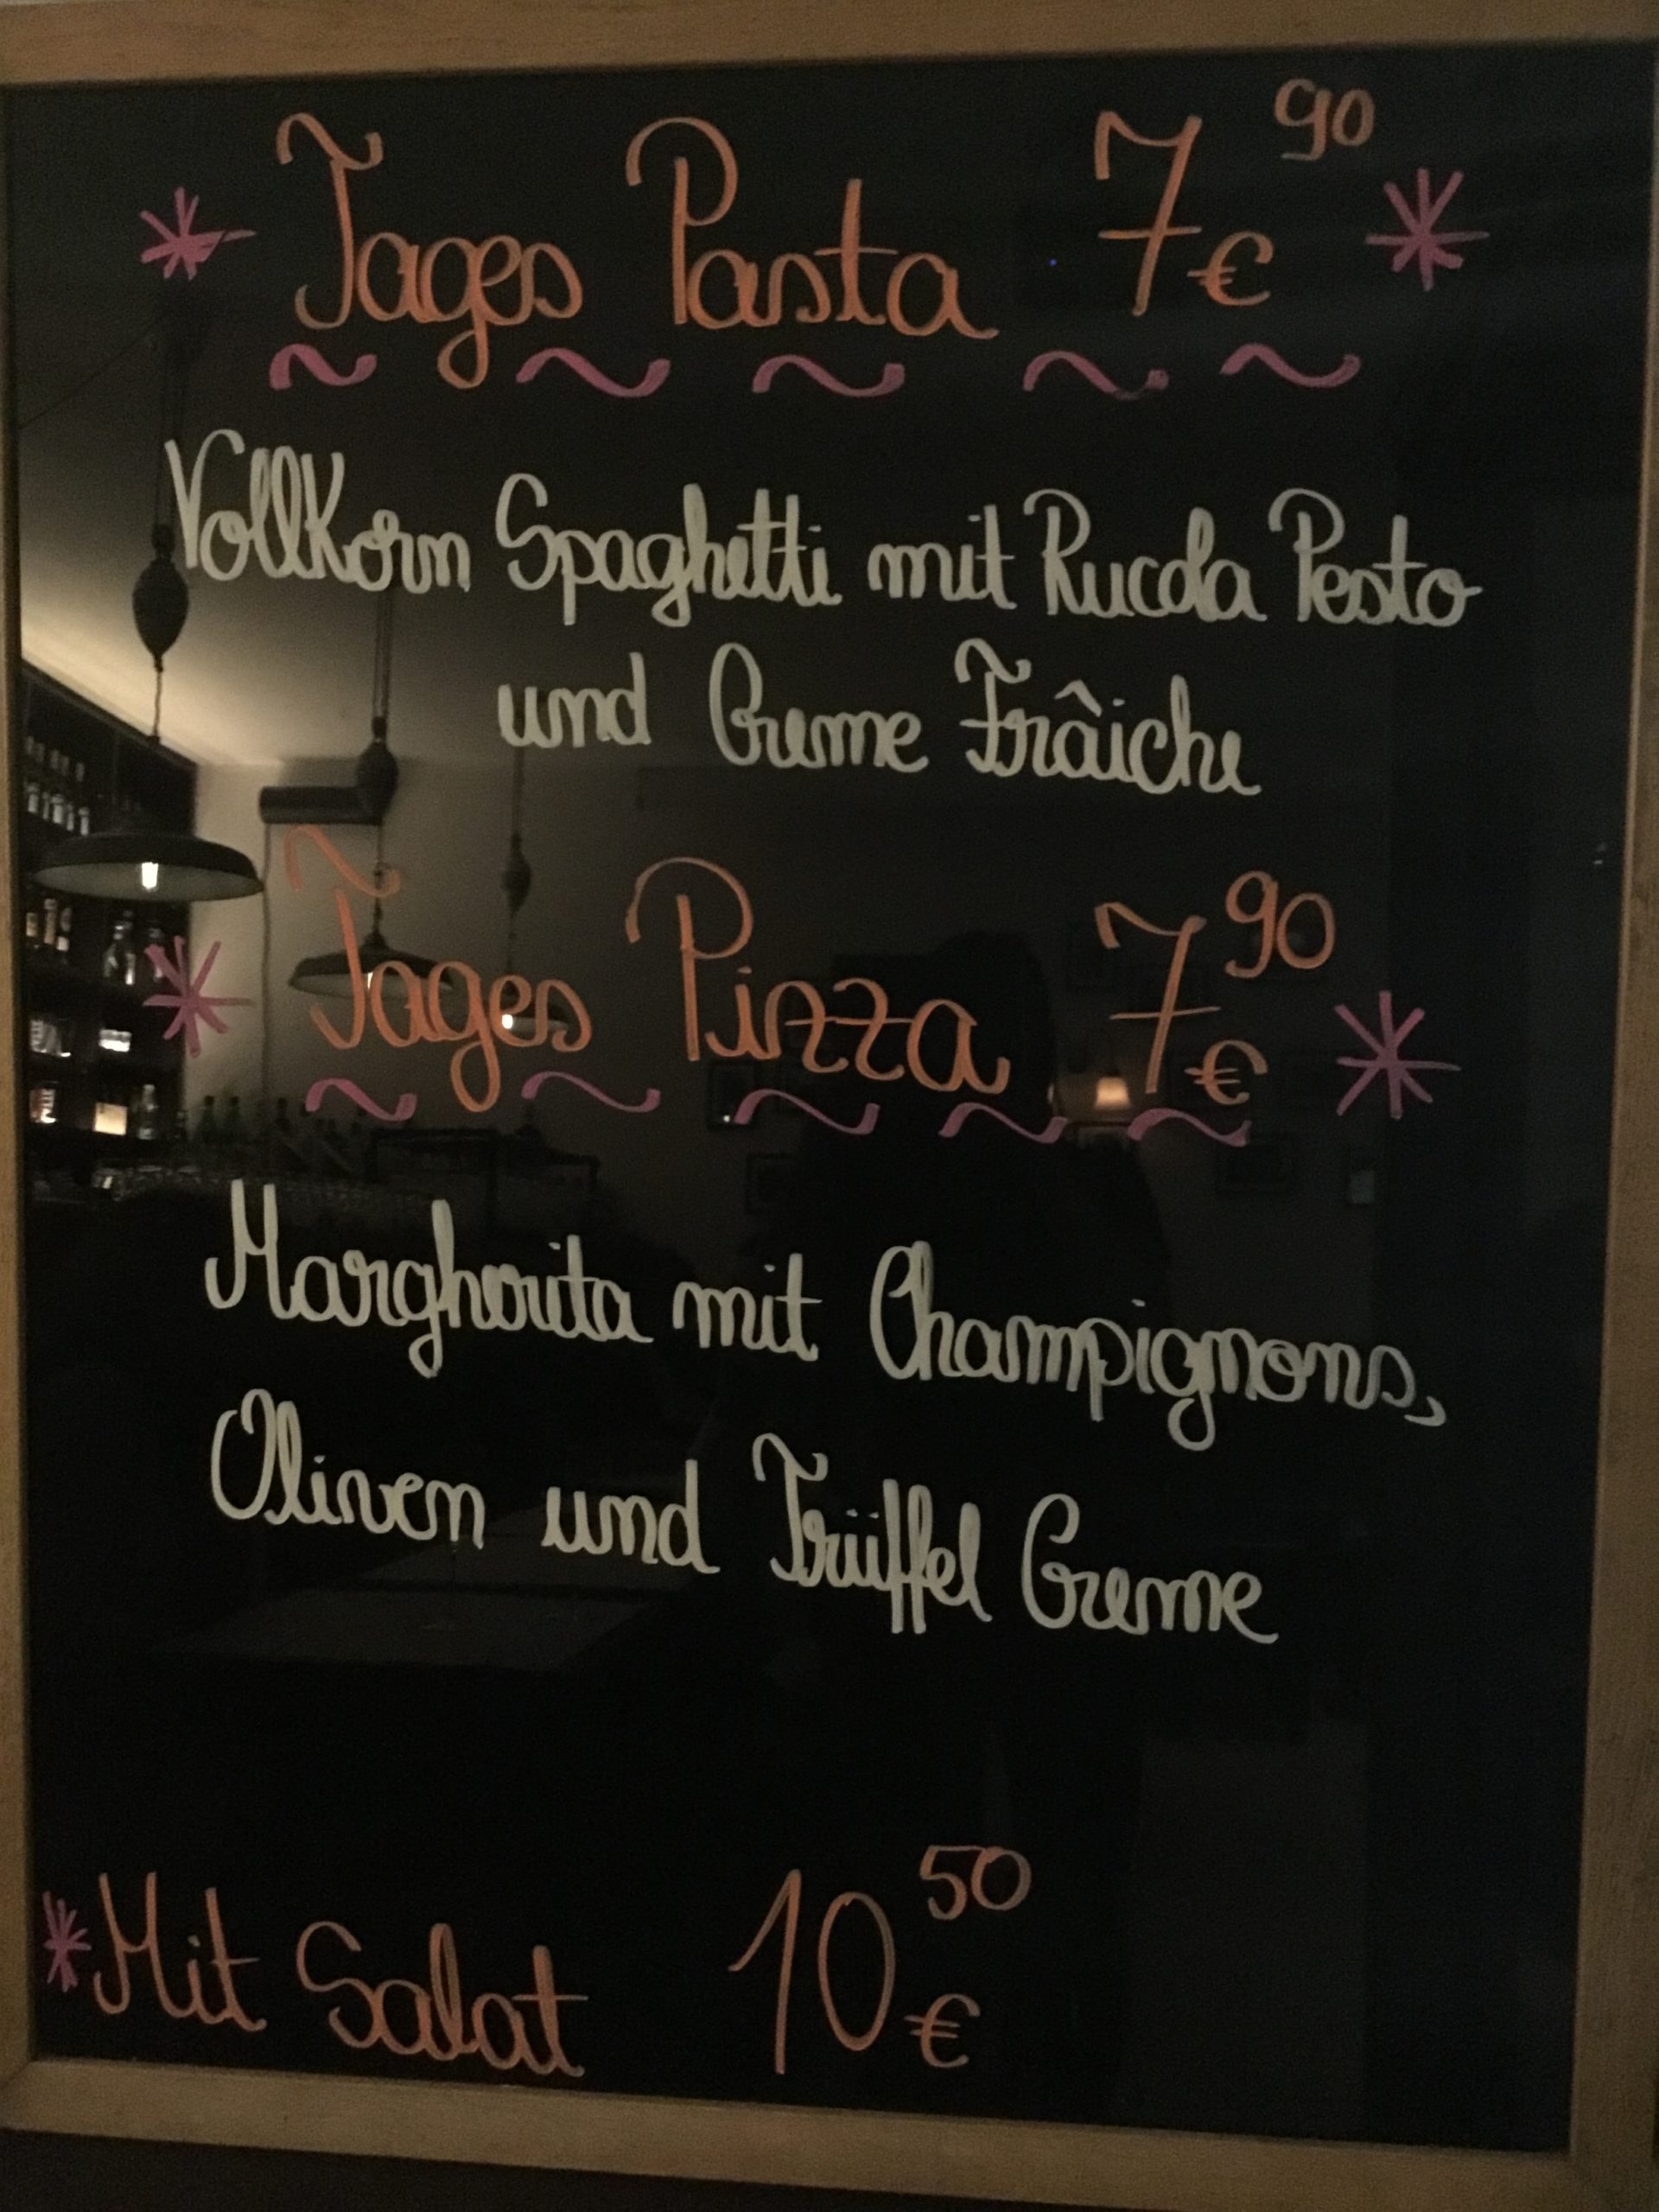 Tages Pasta 7€ 90
Vollkorn Spaghetti mit Rucola Pesto
und Creme Frâiche
Tages Pizza 7€ 90
Margherita mit Champignons,
Oliven und Trüffel Creme
*Mit Salat 10€ 50